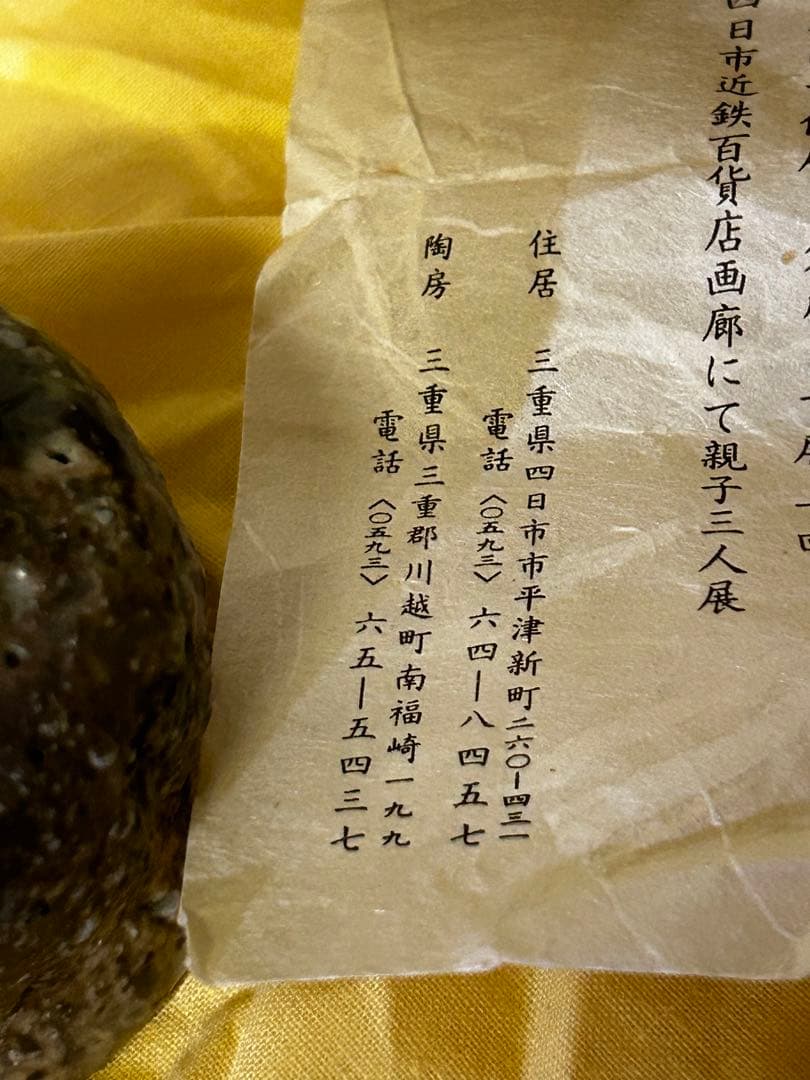 四日市近鉄百貨店画廊にて親子三人展
住居 三重県四日市市平津新町二六〇―四三一
電話〈〇五九三〉六四―八四五七
陶房 三重県三重郡川越町南福崎一九九
電話〈〇五九三〉六五―五四三七